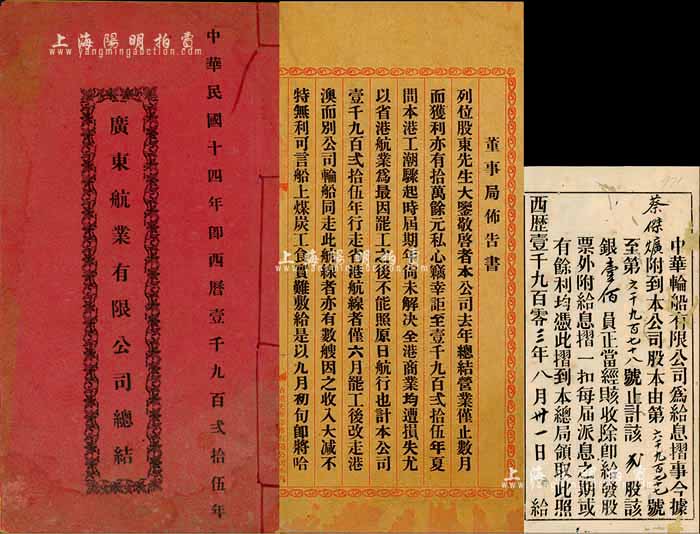 上海陽明拍賣
www.yangmingauction.com
中華民國十四年即西曆壹千九百弍拾伍年
廣東航業有限公司總結
上海陽明拍賣
董事局佈告書
列位股東先生大鑒敬啓者本公司去年總結營業僅止數月
而獲利亦有拾萬餘元私心竊幸詎至壹千九百弍拾伍年夏
間本港工潮驟起時屆期年尚未解决全港商業均遭損失尤
以省港航業為最因罷工之後不能照原日航行也計本公司
壹千九百弍拾伍年行走省港航線者僅六月罷工後改走港
澳而別公司輪船同走此航線者亦有數艘因之收入大减不
特無利可言船上煤炭工食實難敷給是以九月初旬即將哈
中華輪船有限公司為給息摺事今據
蔡傑爌附到本公司股本由第六千九百七七號
至第六千九百七八號止計該 股該
銀壹佰員正當經賅收除即給發股
票外附給息摺一扣每屆派息之期或
有餘利均憑此摺到本總局領取此照
西歷壹千九百零三年八月卅一日 給